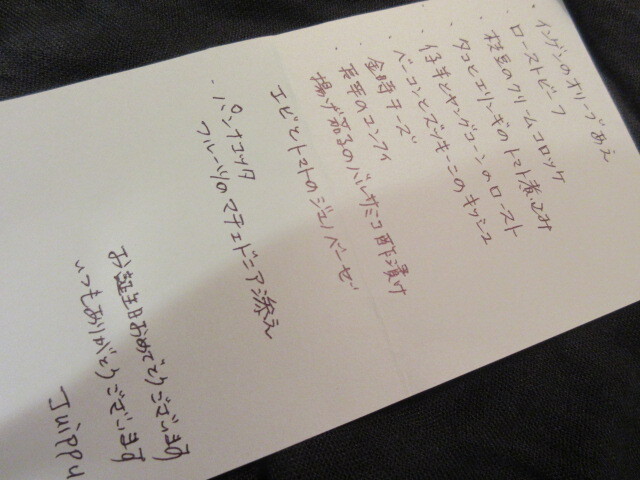 ・インゲンのオリーブあえ
・ローストビーフ
・枝豆のクリームコロッケ
・タコとエリンギのトマト煮込み
・仔羊とヤングコーンのロースト
・ベーコンとズッキーニのキッシュ
・金時チーズ
・長芋のコンフィ
・揚げ茄子のバルサミコ酢漬け
エビとトマトのジェノベーゼ
・パンナコッタ
フルーツのマチェドニア添え
お誕生日おめでとうございます
いつもありがとうございます